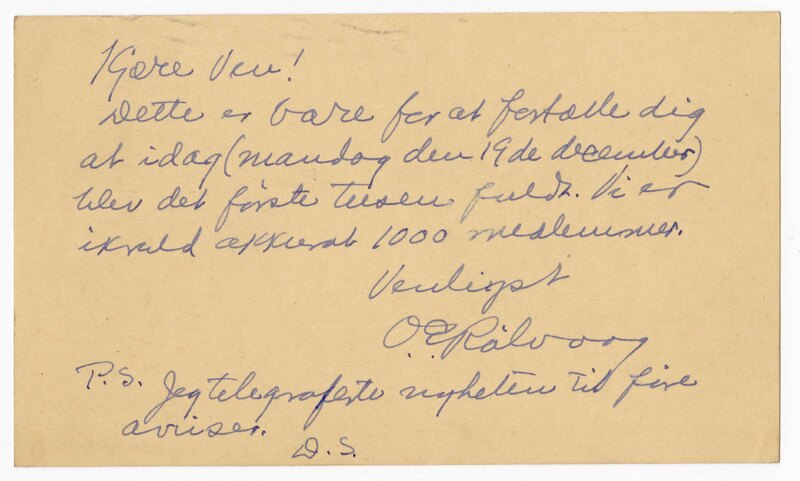 Kjære Ven!
Dette er bare for at fortælle dig
at idag (mandag den 19de december)
blev det første tusen fuldt. Vi er
ikveld akkurat 1000 medlemmer.
Venligst
O E Rölvaag
P.S. Jeg telegraferte nyheten til fire
aviser.
D.S.